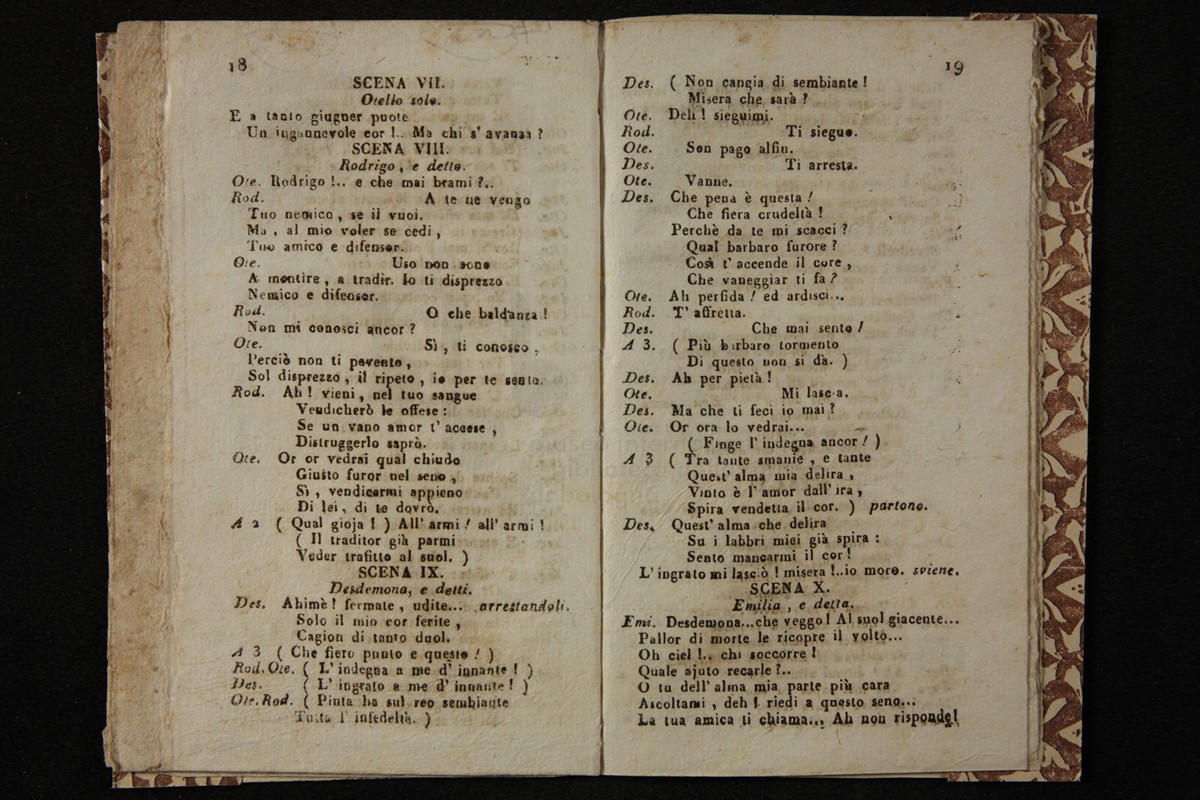 18
SCENA VII.
Otello solo.
E a tanto giugner puote
Un ingannevole cor !.. Ma chi s' avanza ?
SCENA VIII.
Rodrigo , e detto.
Ote. Rodrigo !.. e che mai brami ?..
Rod. A te ne vengo
Tuo nemico , se il vuoi.
Ma , al mio voler se cedi ,
Tuo amico e difensor.
Ote. Uso non sono
A mentire , a tradir. Io ti disprezzo
Nemico e difensor.
Rod. O che baldanza !
Non mi conosci ancor ?
Ote. Sì , ti conosco ,
Perciò non ti pavento ,
Sol disprezzo , il ripeto , io per te sento.
Rod. Ah ! vieni , nel tuo sangue
Vendicherò le offese :
Se un vano amor t' accese ,
Distruggerlo saprò.
Ote. Or or vedrai qual chiudo
Giusto furor nel seno ,
Sì , vendicarmi appieno
Di lei , di te dovrò.
A 2 ( Qual gioja ! ) All' armi ! all' armi !
( Il traditor già parmi
Veder trafitto al suol. )
SCENA IX.
Desdemona, e detti.
Des. Ahimè ! fermate , udite... arrestandoli.
Solo il mio cor ferite ,
Cagion di tanto duol.
A 3 ( Che fiero punto e questo ! )
Rod. Ote. ( L' indegna a me d' innante ! )
Des. ( L' ingrato a me d' innante ! )
Ote. Rod. ( Pinta ha sul reo sembiante
Tutta l' infedeltà. )
19
Des. ( Non cangia di sembiante !
Misera che sarà ?
Ote. Deh ! sieguimi.
Rod. Ti sieguo.
Ote. Son pago alfin.
Des. Ti arresta.
Ote. Vanne.
Des. Che pena è questa !
Che fiera crudeltà !
Perchè da te mi scacci ?
Qual barbaro furore ?
Così t' accende il core ,
Che vaneggiar ti fa ?
Ote. Ah perfida ! ed ardisci...
Rod. T' affretta.
Des. Che mai sento !
A 3. ( Più barbaro tormento
Di questo non si dà. )
Des. Ah per pietà !
Ote. Mi lascia.
Des. Ma che ti feci io mai ?
Ote. Or ora lo vedrai...
( Finge l' indegna ancor ! )
A 3 ( Tra tante smanie , e tante
Quest' alma mia delira ,
Vinto è l' amor dall' ira ,
Spira vendetta il cor. ) partono.
Des. Quest' alma che delira
Su i labbri miei già spira :
Sento mancarmi il cor !
L' ingrato mi lasciò ! misera !..io moro. sviene.
SCENA X.
Emilia , e detta.
Emi. Desdemona...che veggo ! Al suol giacente...
Pallor di morte le ricopre il volto...
Oh ciel !.. chi soccorre !
Quale ajuto recarle ?..
O tu dell' alma mia parte più cara
Ascoltami , deh ! riedi a questo seno...
La tua amica ti chiama... Ah non risponde!